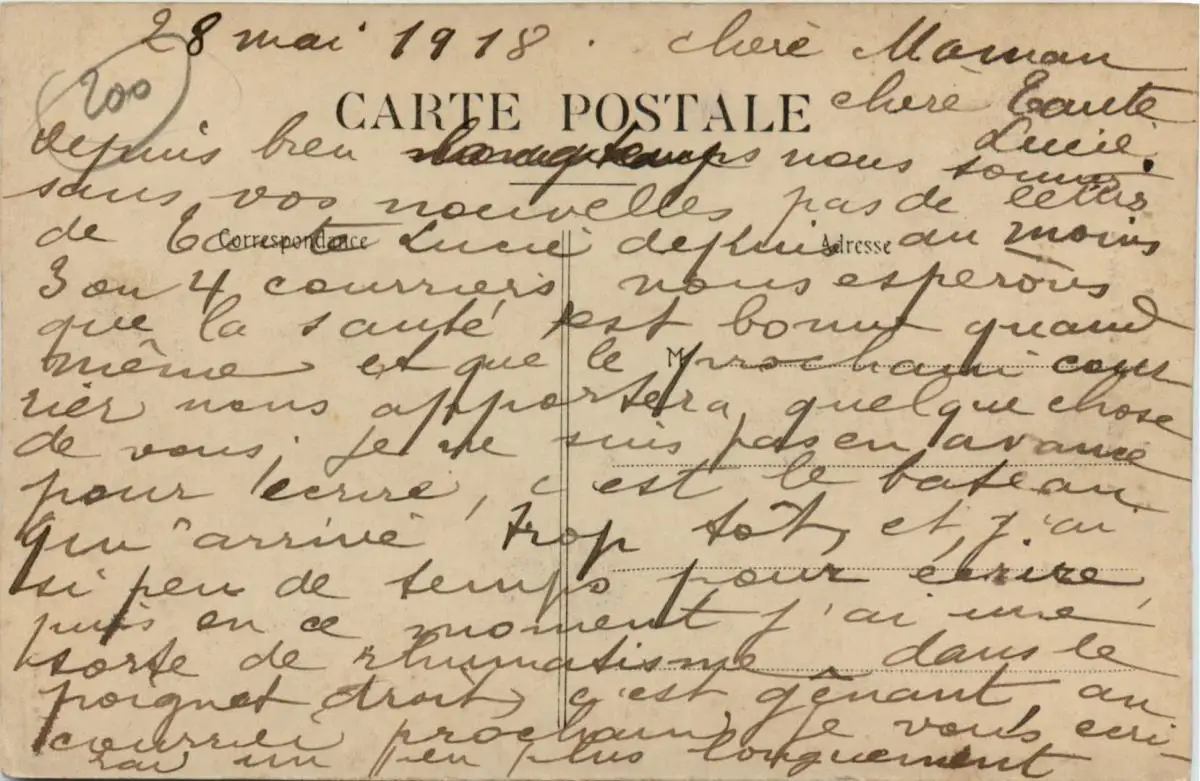 28 mai 1918. chere Maman
200
CARTE POSTALE
chere Tante
Lucie.
depuis bien longtemps nous sommes
sans vos nouvelles pas de lettres
de Tante Lucie depuis au moins
Correspondance
Adresse
3 ou 4 courriers nous esperons
que la santé est bonne quand
même et que le prochain cour
M
rier nous apportera quelque chose
de vous; je ne suis pas en avance
pour écrire, c'est le bateau
qui arrive trop tôt, et j'ai
si peu de temps pour écrire,
puis en ce moment j'ai une
sorte de rhumatisme dans le
poignet droit, c'est gênant, au
courrier prochain je vous ecri-
rai un peu plus longuement